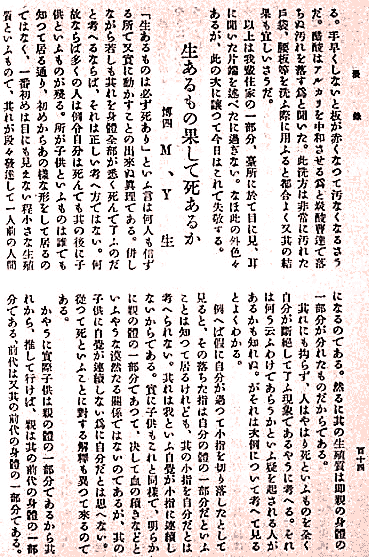 叢錄
百十四
る。手早くしないと板が赤くなつて汚なくなるさう
だ。醋酸はアルカリを中和させる爲と炭酸曹達で落
ちぬ汚れを落す爲と聞いた。此洗方は非常に汚れた
戸袋、腰板等を洗ふ際に用ふると都合よく又其の結
果も宜しいさうだ。
以上は我盟住家の一部分、臺所に於て目に見、耳
に聞いた片端を述べたに過ぎない。なほ此の外色々
あるが、此の次に讓つて今日はこれで失敬する。
生あるもの果して死あるか
博四 M、Y 生
「生あるものは必ず死あり」といふ言は何人も信ず
る所で又實に動かすことの出來ぬ眞理である。併し
ながら若しも其れを身體全部が悉く死んで了ふのだ
と考へるならば、それは正しい考へ方ではない。何
故ならば多くの人は例令自分は死んでも其の後に子
供といふものが殘る。所が子供といふものは誰でも
知つて居る通り、初めからあの樣な形をして居るの
ではなく、一番初めは目にも見えない程小さな生殖
質といふもので、其れが段々發達して一人前の人間
になるのである。然るに其の生殖質は即親の身體の
一部分が分れたものだからである。
其れにも拘らず、人はやはり死といふものを全く
自分が斷絶して了ふ現象であるやうに考へる。それ
は何う云ふわけであらうかといふ疑を起される人が
あるかも知れぬ。がそれは次例について考へて見る
とよくわかる。
例へば假に自分が過つて小指を切り落したとして
見ると、その落ちた指は自分の體の一部分だといふ
ことは知つて居るけれども、其の小指を自分だとは
考へられない。其れは我といふ自覺が小指に連續し
ないからである。實に子供もこれと同樣で、明らか
に親の體の一部分であつて、決して血の續きなどと
いふやうな漠然たる關係ではないのであるが、其の
子供に自覺が連續しない爲に自分だとは思へない。
從つて死といふことに對する解釋も異つて來るので
ある。
かやうに實際子供は親の體の一部分であるから其
れから、推して行けば、親は其の前代の身體の一部
分である、前代は又其の前代の身體の一部分である。